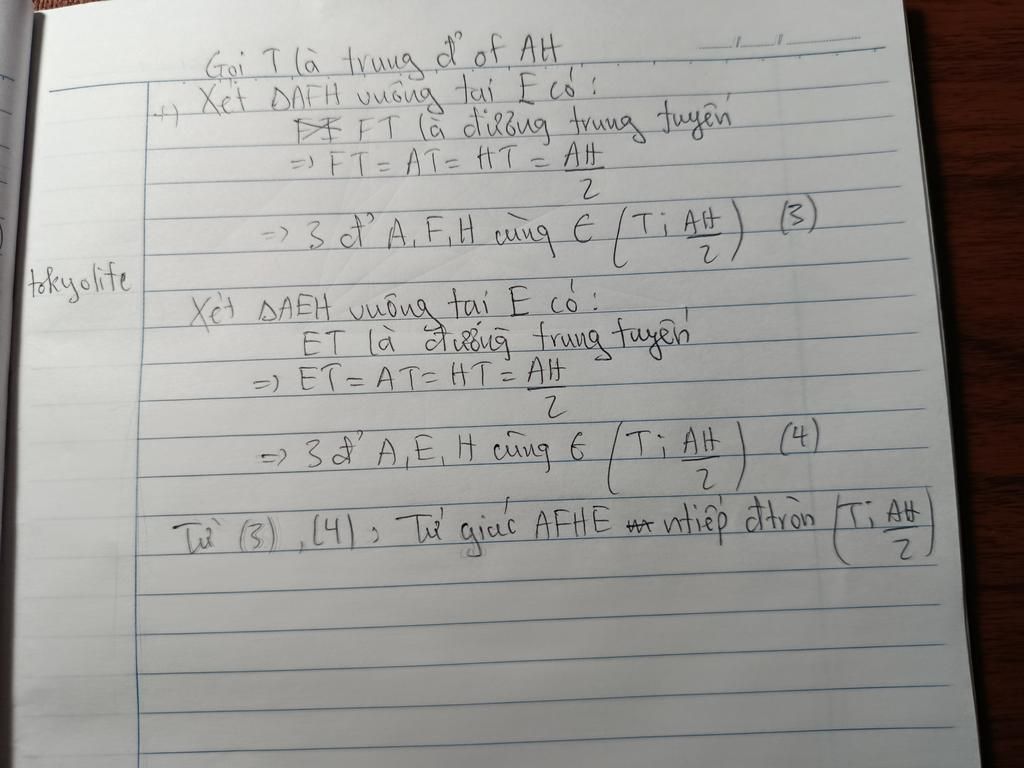 Gọi T là trung đ' of AH
+) Xét ΔAFH vuông tại E có:
FT là đường trung tuyến
=> FT = AT = HT = AH/2
=> 3 đ' A, F, H cùng ∈ (T; AH/2) (3)
tokyolife
Xét ΔAEH vuông tại E có:
ET là đường trung tuyến
=> ET = AT = HT = AH/2
=> 3 đ' A, E, H cùng ∈ (T; AH/2) (4)
Từ (3), (4), Tứ giác AFHE ntiếp đtròn (T; AH/2)